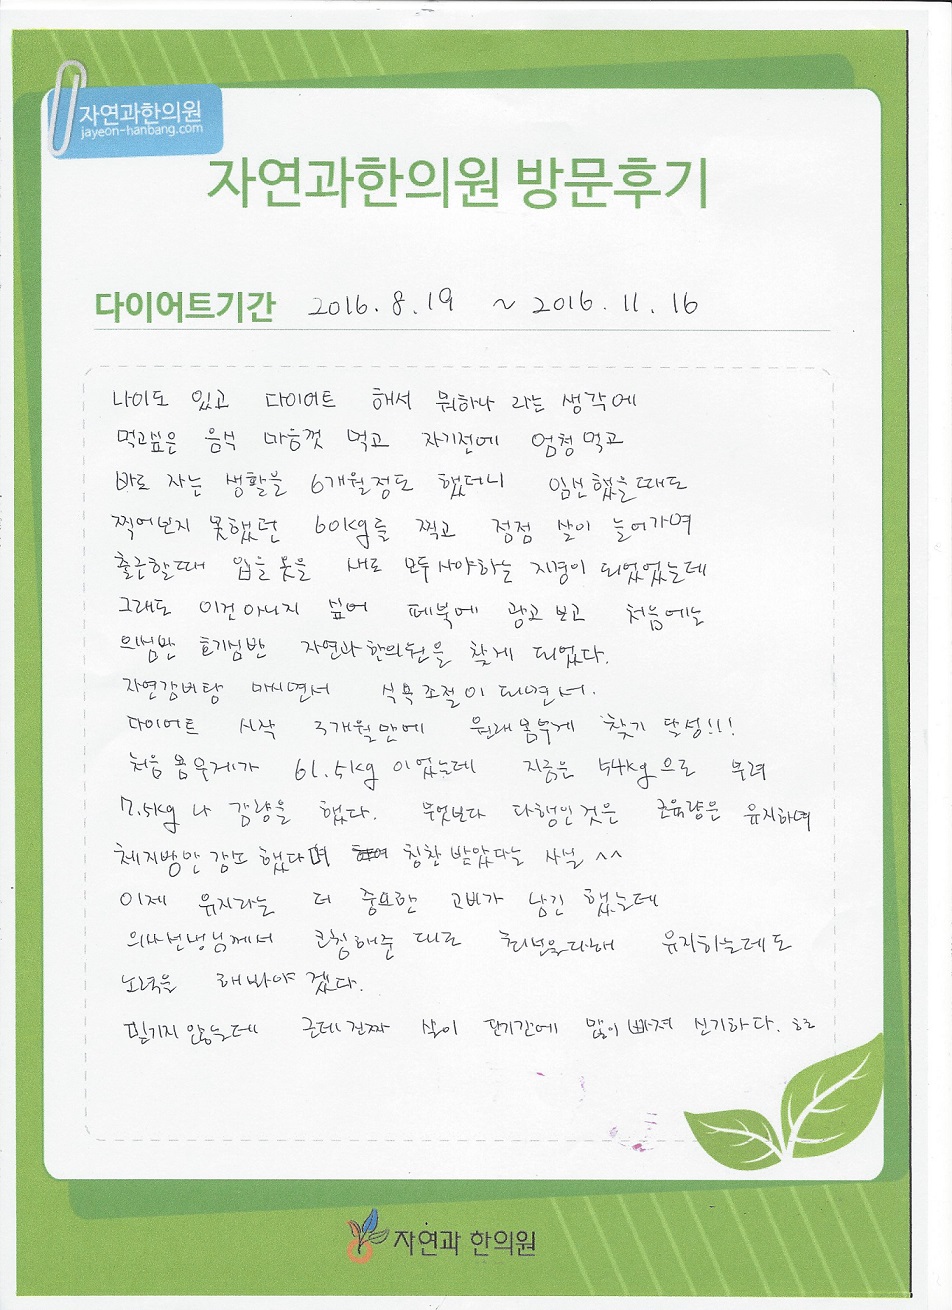 자연과한의원
jayeon-hanbang.com
자연과한의원 방문후기
다이어트기간 2016. 8. 19 ~ 2016. 11. 16
나이도 있고 다이어트 해서 뭐하나 라는 생각에
먹고싶은 음식 마음껏 먹고 자기전에 엄청 먹고
바로 자는 생활을 6개월정도 했더니 임신했을때도
찍어본지 못했던 60kg를 찍고 점점 살이 늘어가며
출근할때 입을 옷을 새로 모두 사야하는 지경이 되었었는데
그래도 이건 아니지 싶어 페북에 광고 보고 처음에는
의심반 호기심반 자연과한의원을 찾게 되었다.
자연감비탕 마시면서 식욕조절이 되면서.
다이어트 시작 3개월만에 원래몸무게 찾기 달성!!!
처음 몸무게가 61.5kg 이었는데 지금은 54kg으로 무려
7.5kg나 감량을 했다. 무엇보다 다행인것은 근육량은 유지하며
체지방만 감소 했다며 칭찬 받았다는 사실 ^^
이제 유지라는 더 중요한 고비가 남긴 했는데
의사선생님께서 코칭해준 대로 최선을다해 유지하는데도
노력을 해봐야 겠다.
믿기지 않는데 근데 진짜 살이 단기간에 많이 빠져 신기하다. ㅎㅎ
자연과 한의원